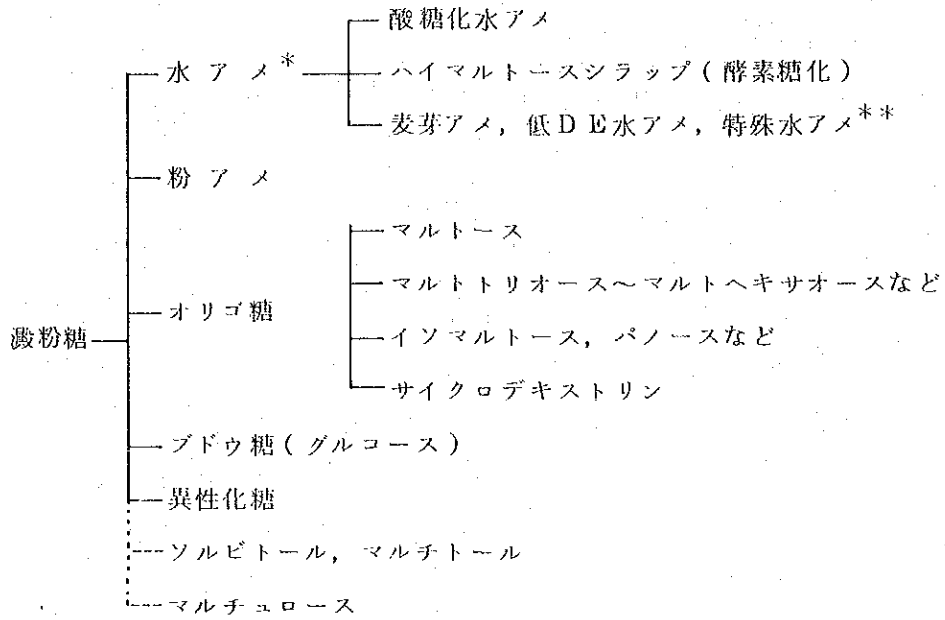 酸糖化水アメ
水アメ*
ハイマルトースシラップ(酵素糖化)
麦芽アメ, 低DE水アメ, 特殊水アメ**
粉アメ
マルトース
マルトトリオース~マルトヘキサオースなど
オリゴ糖
澱粉糖
イソマルトース, パノースなど
サイクロデキストリン
ブドウ糖(グルコース)
異性化糖
ソルビトール, マルチトール
マルチュロース